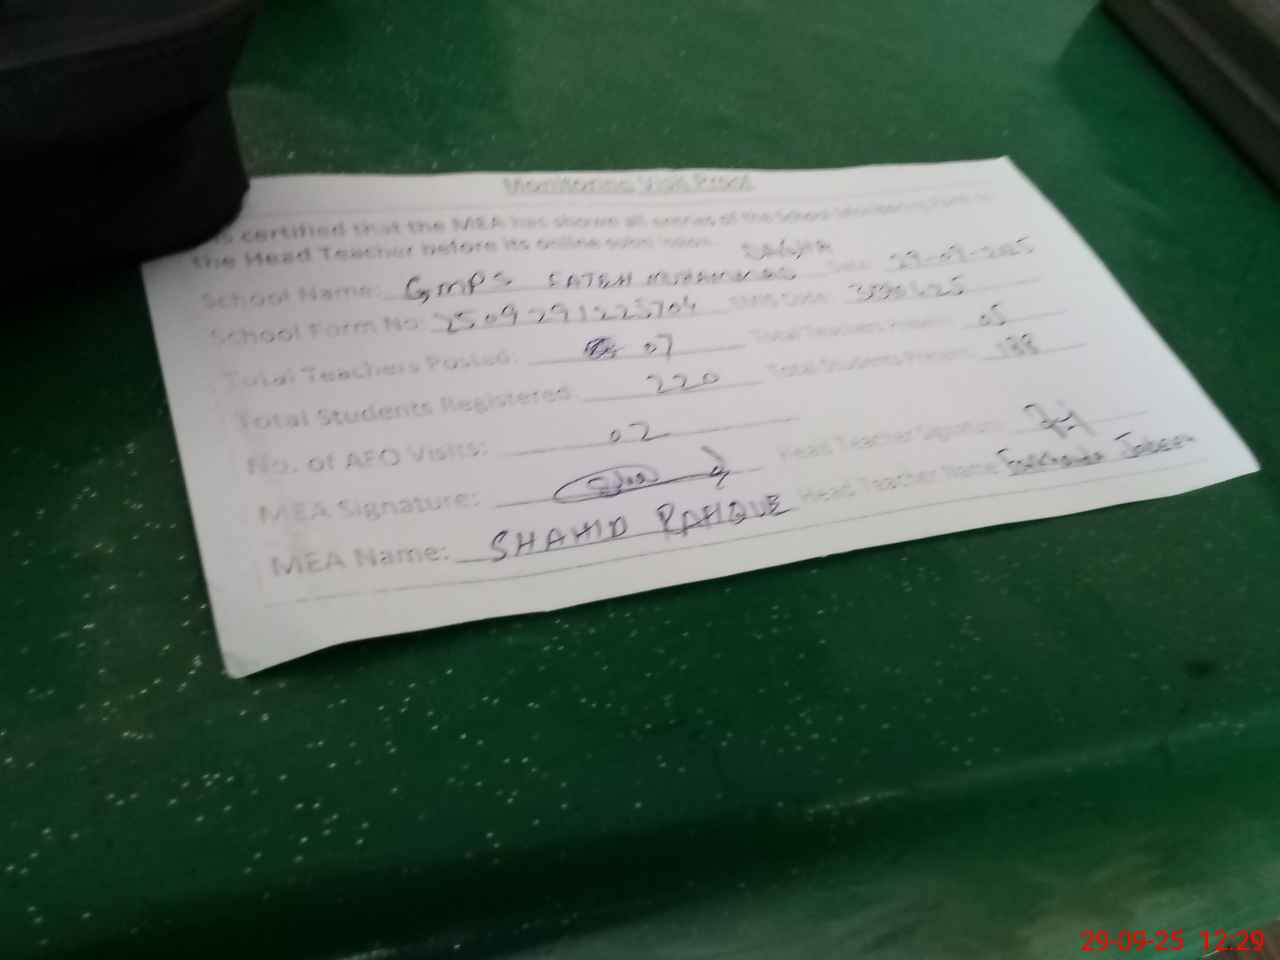 Monitoring Visit Proof
is certified that the MEA has shown all entries of the School Monitoring Form to
the Head Teacher before its online submission.
School Name: GMPS FATEH MUHAMMAD Date: 29-09-2025
School Form No: 2509291225704 EMIS Code:
Total Teachers Posted: 07 Total Teachers Present: 05
Total Students Registered: 220 Total Students Present: 188
No. of AEO Visits: 02
MEA Signature: Head Teacher Signature:
MEA Name: SHAHID RAFIQUE Head Teacher Name: Farkhanda Jabeen
29-09-25 12:29